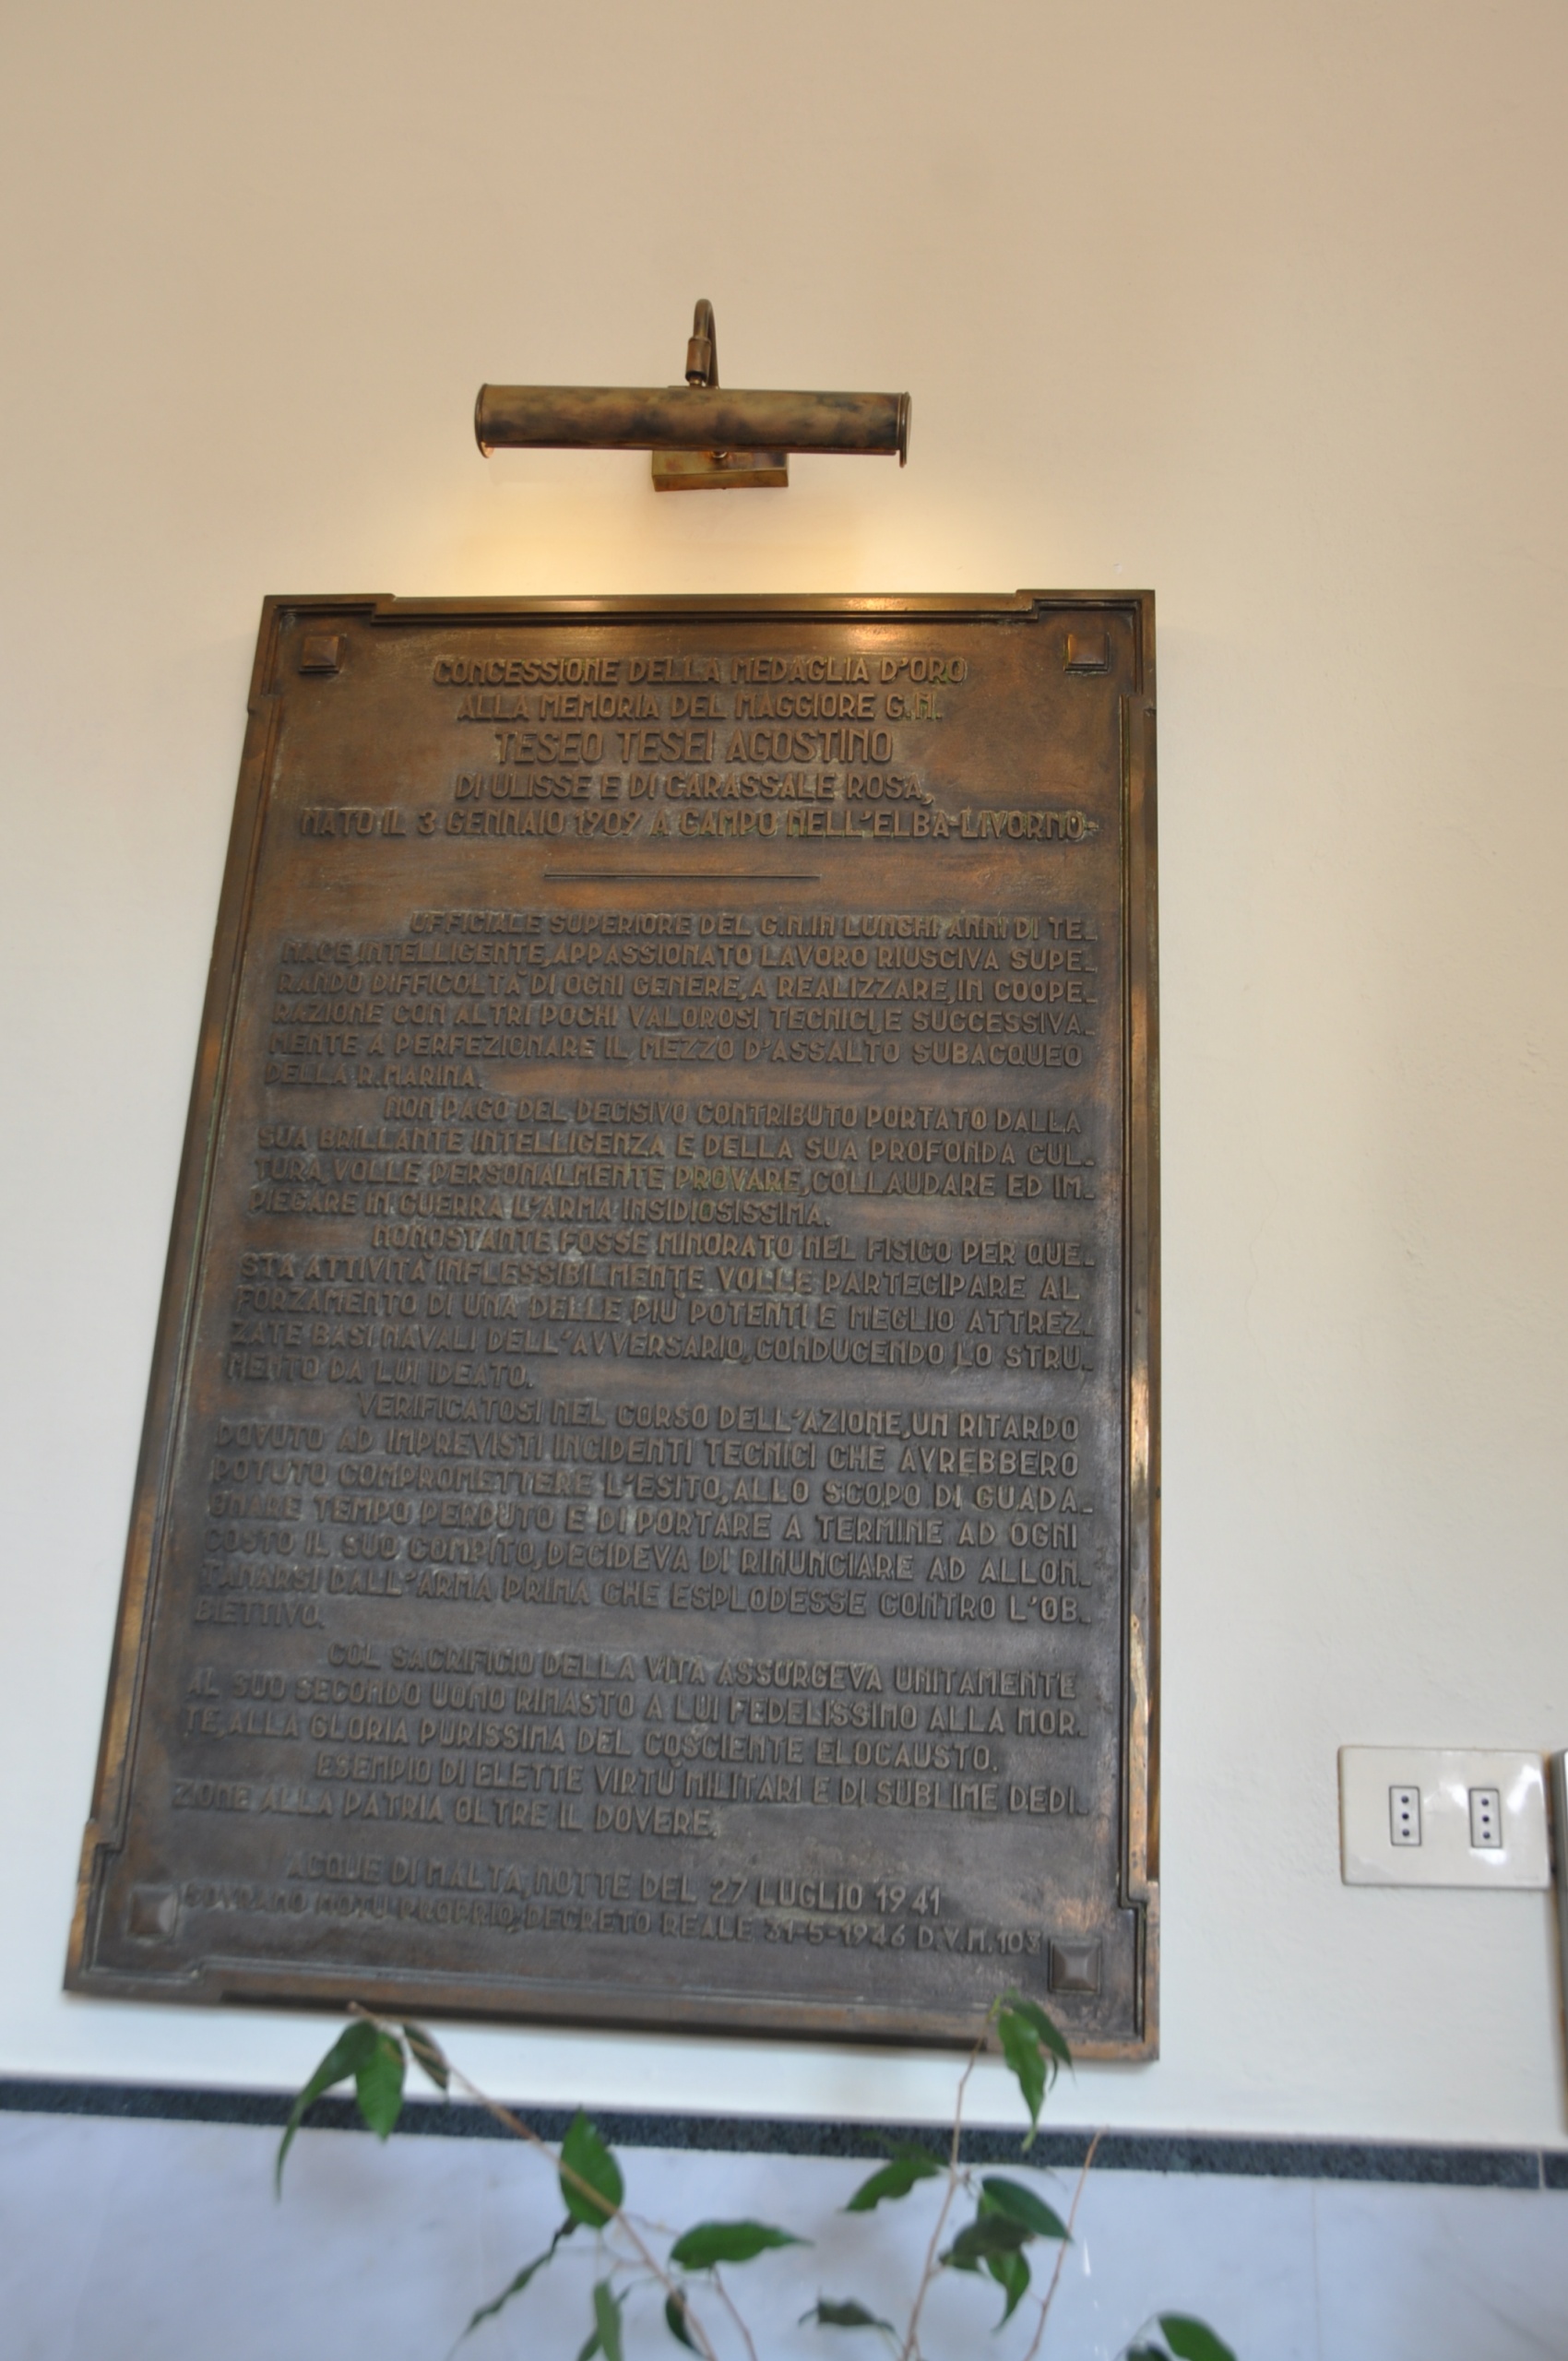 CONCESSIONE DELLA MEDAGLIA D'ORO
ALLA MEMORIA DEL MAGGIORE G.N.
TESEO TESEI AGOSTINO
DI ULISSE E DI CARASSALE ROSA,
NATO IL 3 GENNAIO 1909 A CAMPO NELL'ELBA-LIVORNO-
UFFICIALE SUPERIORE DEL G.N. IN LUNGHI ANNI DI TE-
NACE, INTELLIGENTE, APPASSIONATO LAVORO RIUSCIVA SUPE-
RANDO DIFFICOLTA' DI OGNI GENERE, A REALIZZARE, IN COOPE-
RAZIONE CON ALTRI POCHI VALOROSI TECNICI, E SUCCESSIVA-
MENTE A PERFEZIONARE IL MEZZO D'ASSALTO SUBACQUEO
DELLA R. MARINA.
NON PAGO DEL DECISIVO CONTRIBUTO PORTATO DALLA
SUA BRILLANTE INTELLIGENZA E DELLA SUA PROFONDA CUL-
TURA, VOLLE PERSONALMENTE PROVARE, COLLAUDARE ED IM-
PIEGARE IN GUERRA L'ARMA INSIDIOSISSIMA.
NONOSTANTE FOSSE MINORATO NEL FISICO PER QUE-
STA ATTIVITÀ INFLESSIBILMENTE VOLLE PARTECIPARE AL
FORZAMENTO DI UNA DELLE PIÙ POTENTI E MEGLIO ATTREZ-
ZATE BASI NAVALI DELL'AVVERSARIO, CONDUCENDO LO STRU-
MENTO DA LUI IDEATO.
VERIFICATOSI NEL CORSO DELL'AZIONE, UN RITARDO
DOVUTO AD IMPREVISTI INCIDENTI TECNICI CHE AVREBBERO
POTUTO COMPROMETTERE L'ESITO, ALLO SCOPO DI GUADA-
GNARE TEMPO PERDUTO E DI PORTARE A TERMINE AD OGNI
COSTO IL SUO COMPITO, DECIDEVA DI RINUNCIARE AD ALLON-
TANARSI DALL'ARMA PRIMA CHE ESPLODESSE CONTRO L'OB-
BIETTIVO.
COL SACRIFICIO DELLA VITA ASSURGEVA UNITAMENTE
AL SUO SECONDO UOMO RIMASTO A LUI FEDELISSIMO ALLA MOR-
TE, ALLA GLORIA PURISSIMA DEL COSCIENTE ELOCAUSTO.
ESEMPIO DI ELETTE VIRTÙ MILITARI E DI SUBLIME DEDI-
ZIONE ALLA PATRIA OLTRE IL DOVERE.
ACQUE DI MALTA, NOTTE DEL 27 LUGLIO 1941
SOVRANO MOTU PROPRIO, DECRETO REALE 31-5-1946 D.V.M. 103